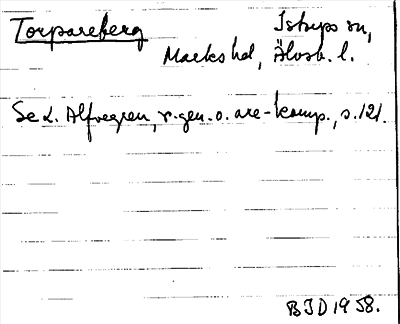 Torpareberg Istorps sn,
Marks hd, Älvsb. l.
Se L. Alfvegren, r-gen. o. are-komp., s. 121.
BJD 1958.